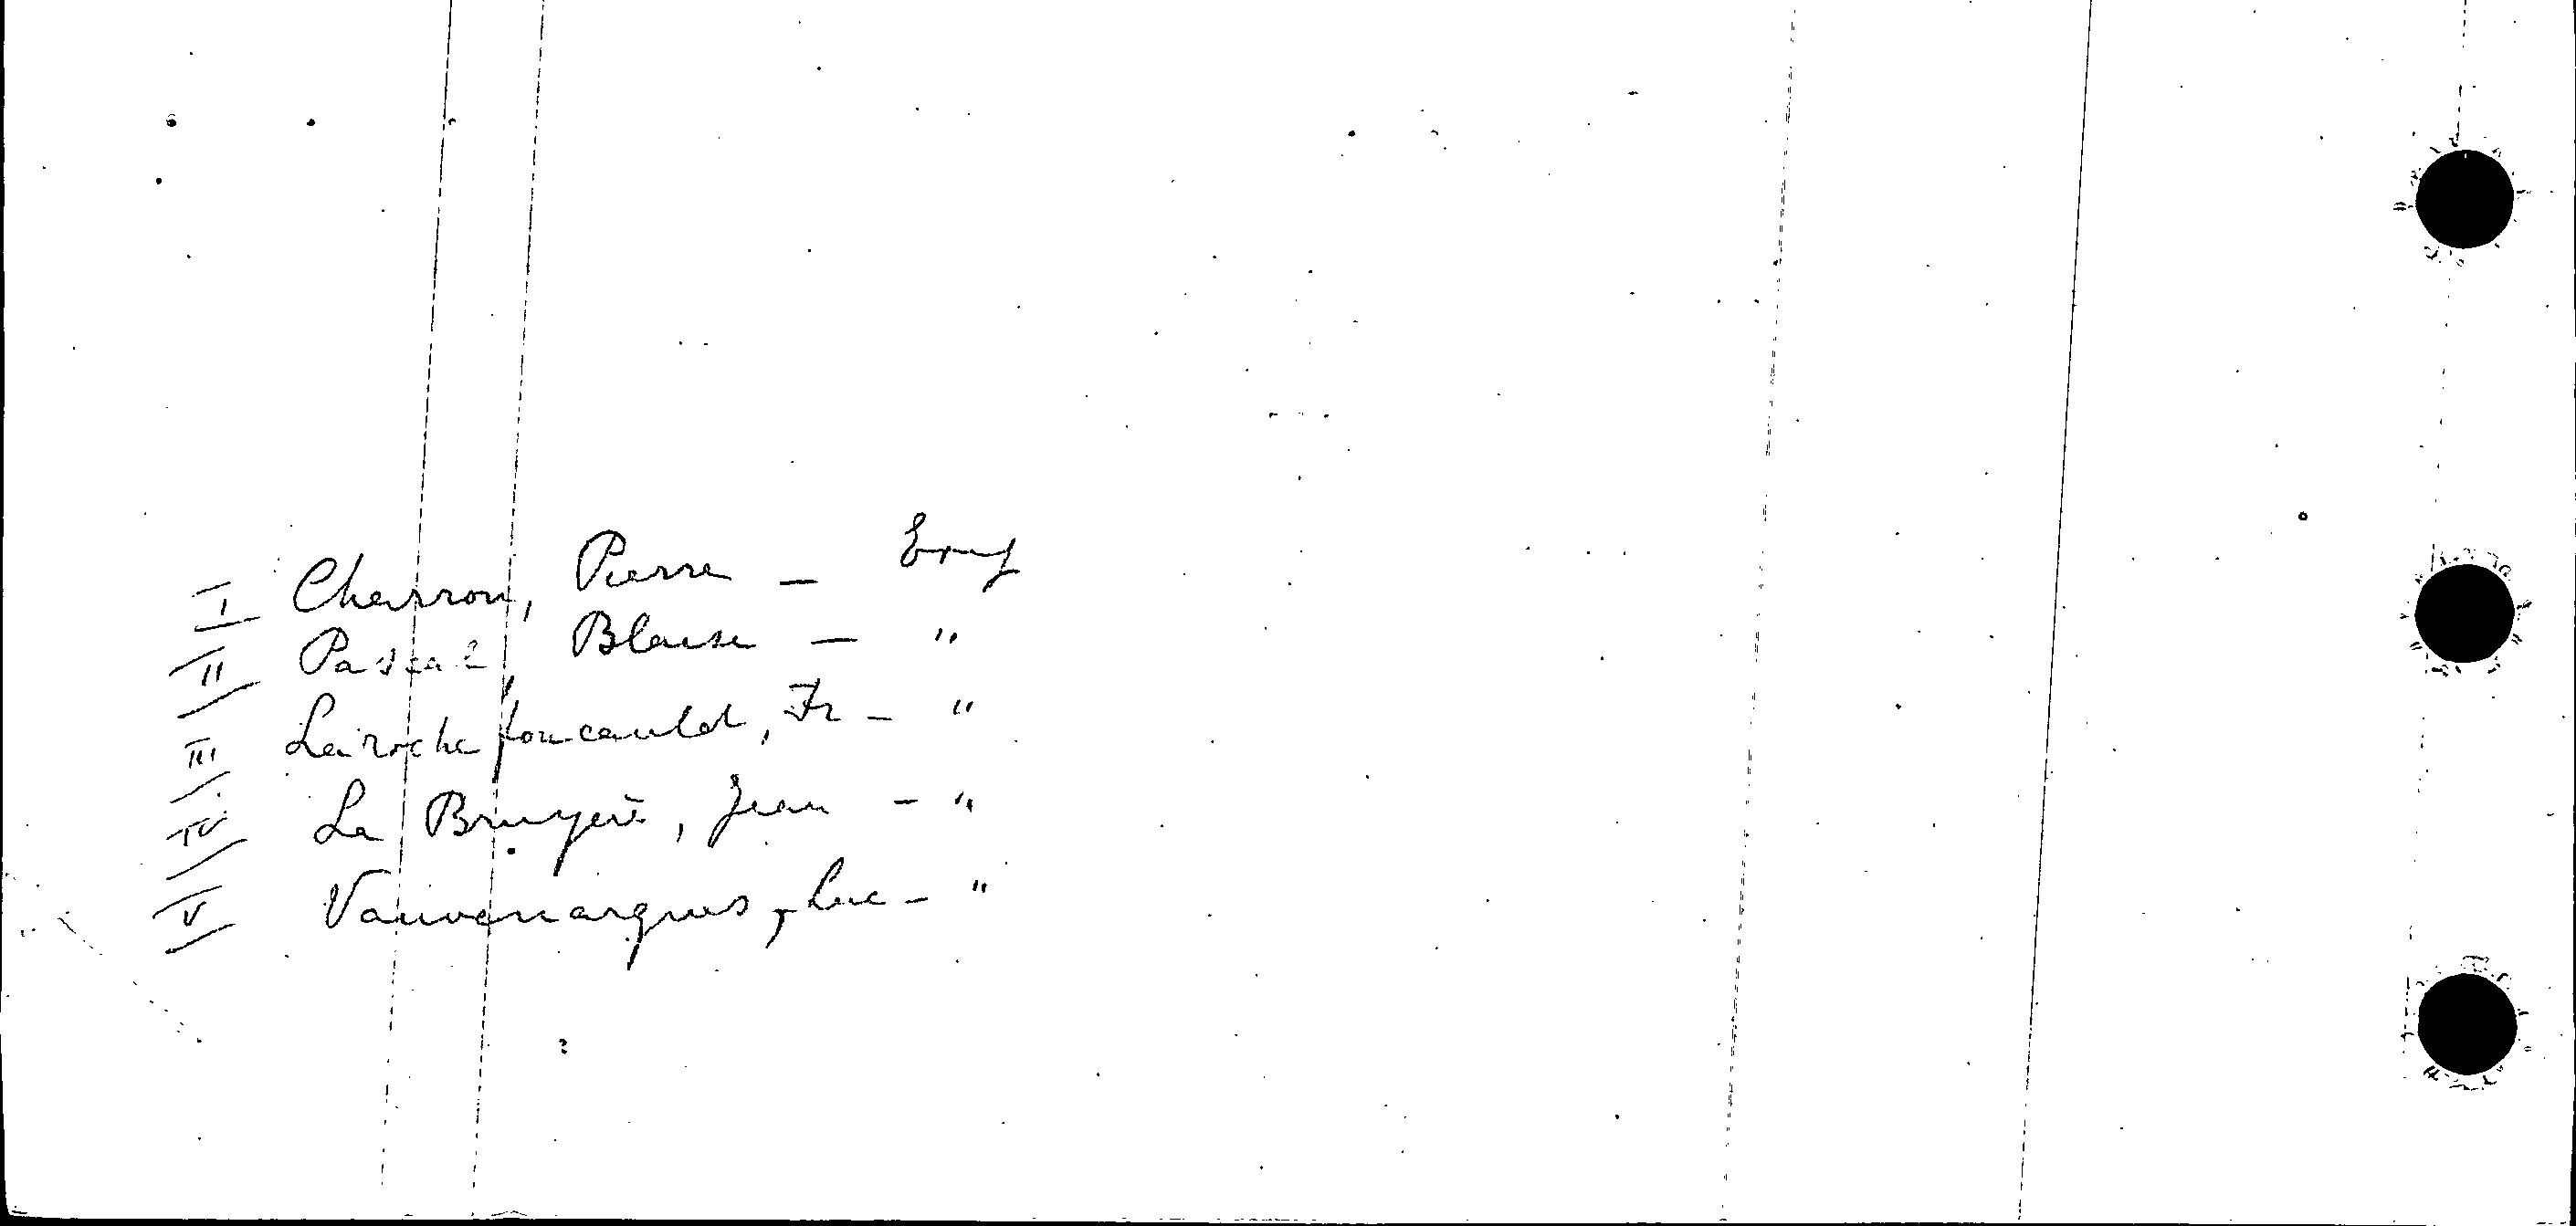 I Charron, Pierre —
II Pascal, Blaise — "
III Larochefoucauld, Fr — "
IV La Bruyère, Jean — "
V Vauvenargues, Luc — "